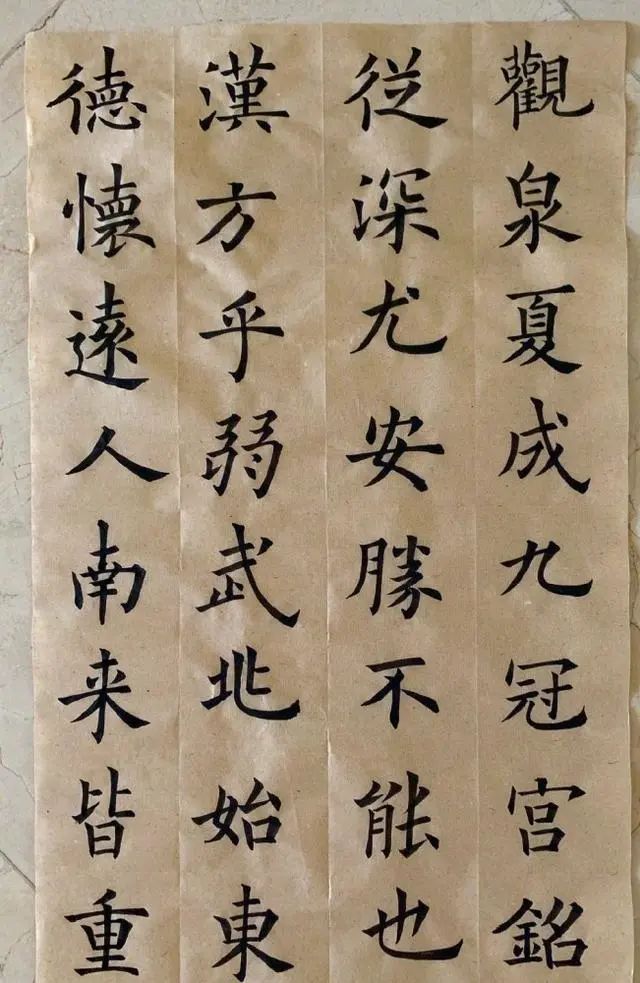 觀泉夏成九冠宮銘
従深尤安勝不能也
漢方乎弱武北始東
德懷遠人南来皆重